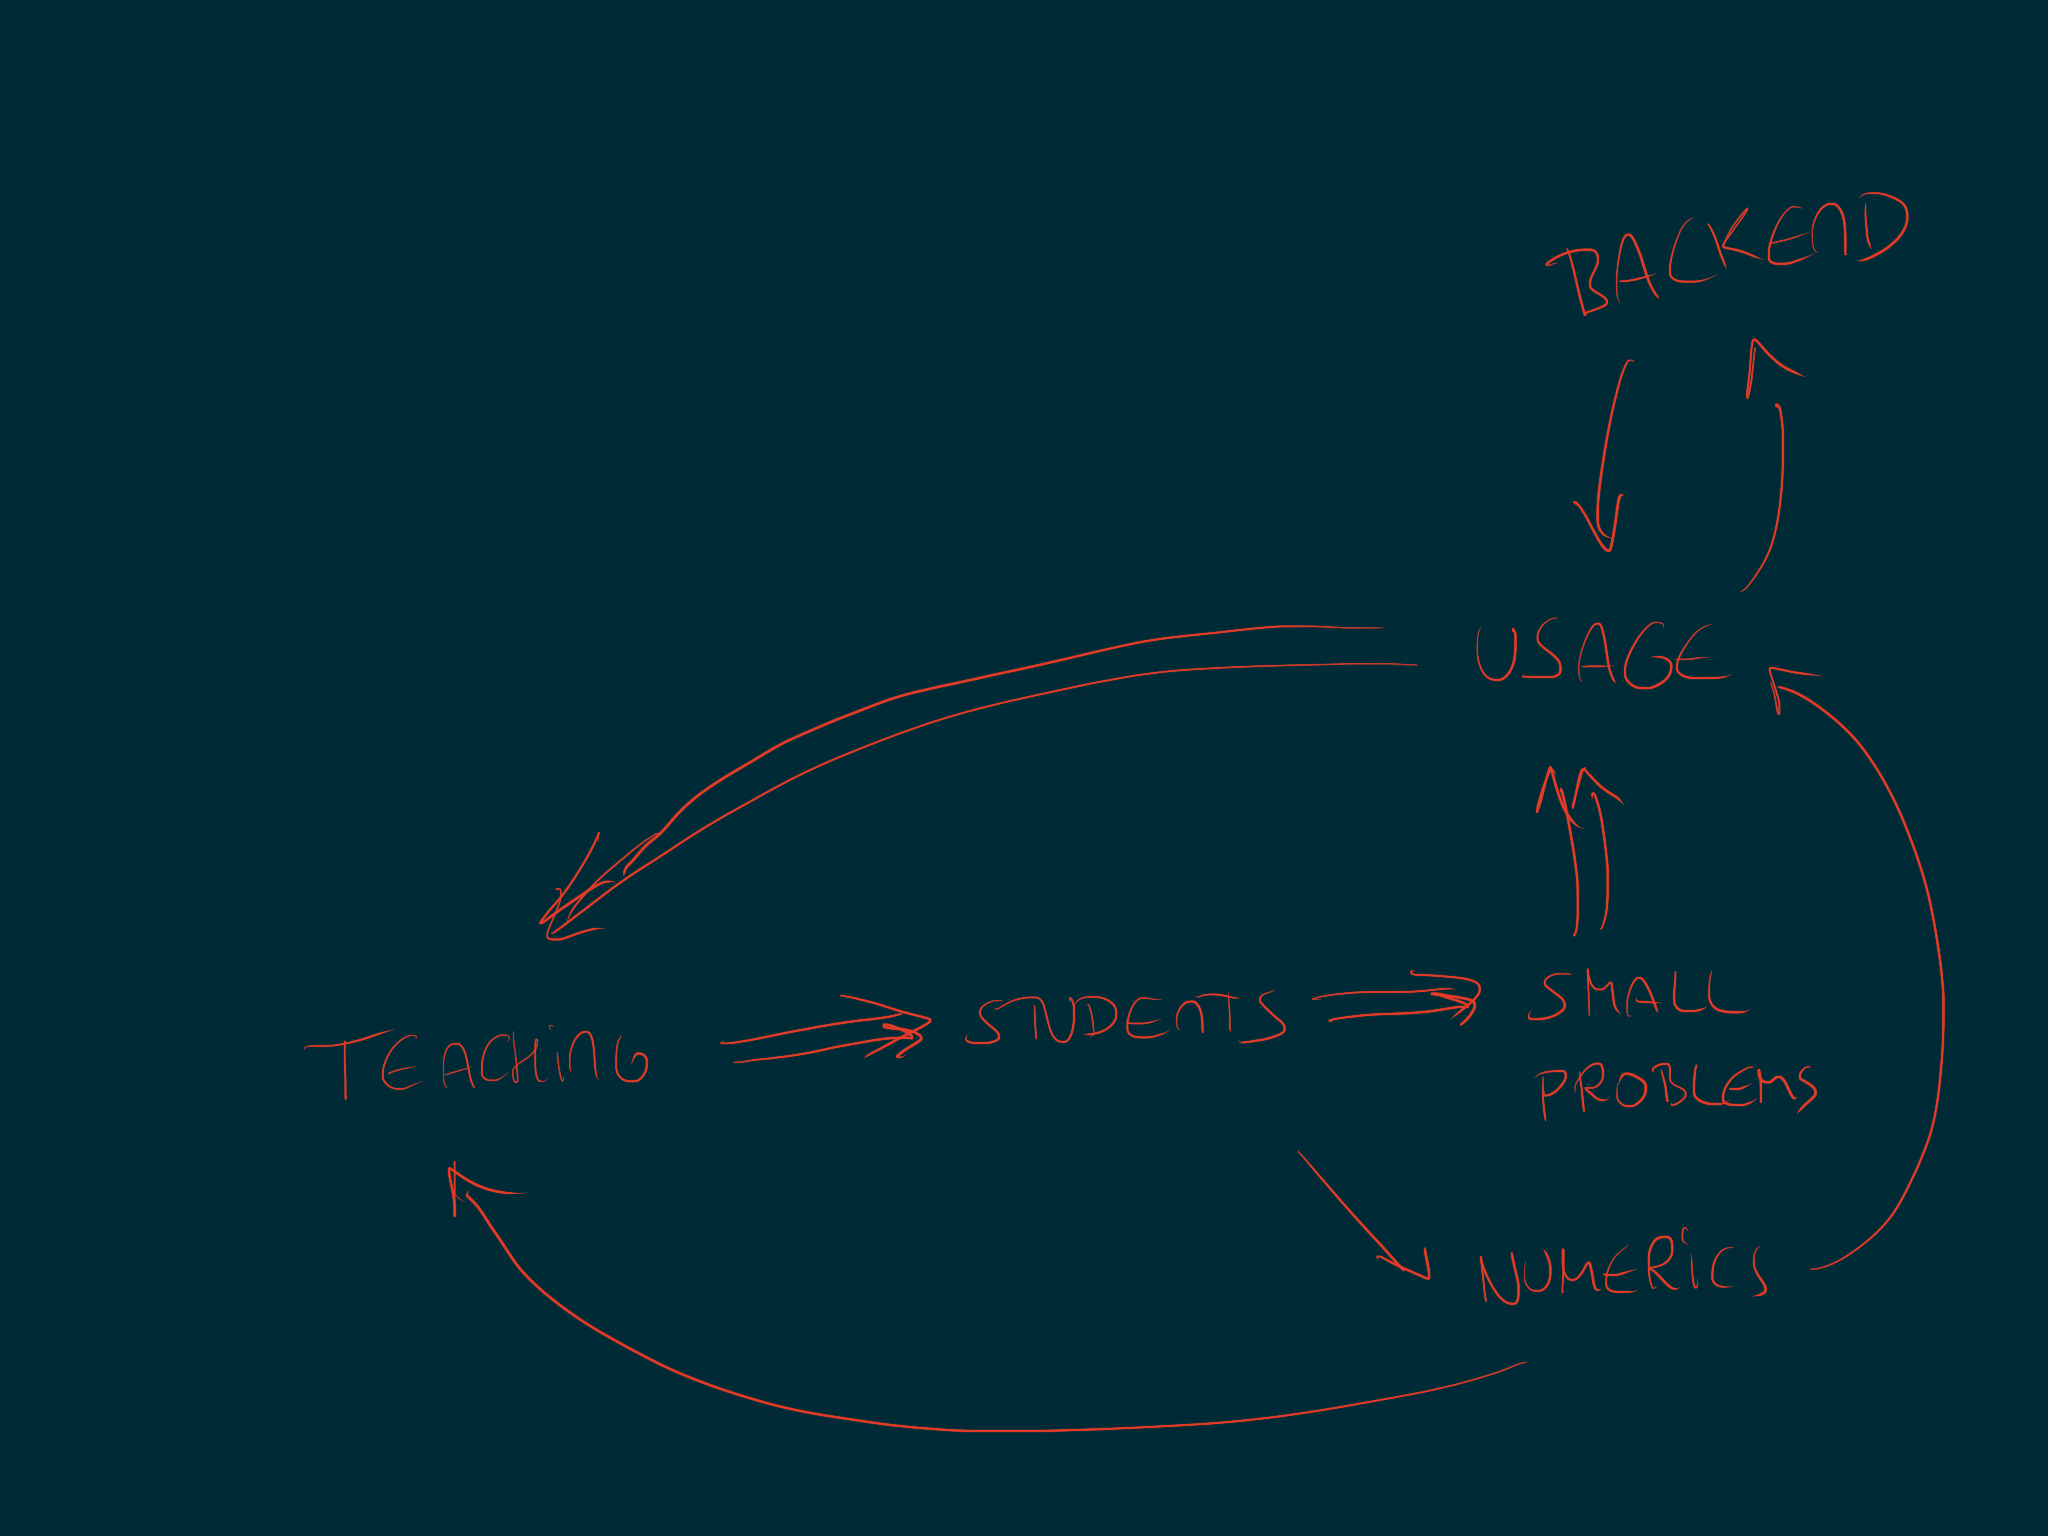 BACKEND
USAGE
TEACHING
STUDENTS
SMALL
PROBLEMS
NUMERICS